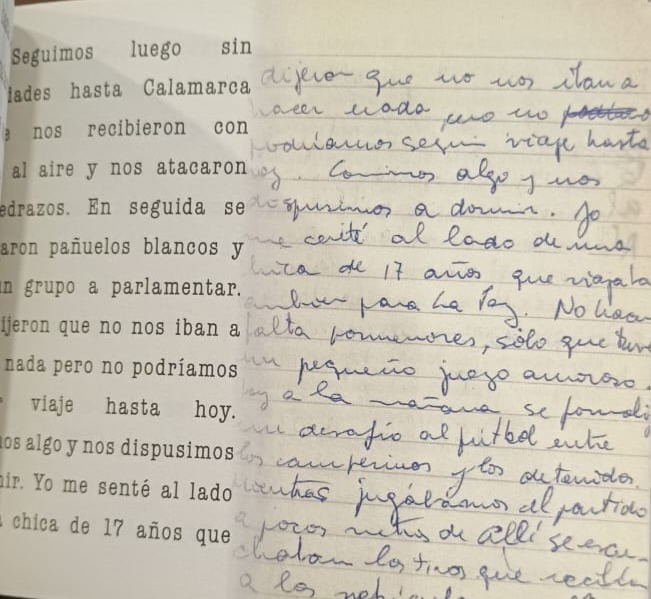 Seguimos luego sin
dades hasta Calamarca
nos recibieron con
al aire y nos atacaron
edrazos. En seguida se
aron pañuelos blancos y
n grupo a parlamentar.
ijeron que no nos iban a
nada pero no podríamos
viaje hasta hoy.
os algo y nos dispusimos
ir. Yo me senté al lado
chica de 17 años que
dijeron que no nos iban a
hacer nada pero no
podríamos seguir viaje hasta
hoy. Comimos algo y nos
dispusimos a dormir. Yo
me senté al lado de una
chica de 17 años que viajaba
también para La Paz. No hacen
falta pormenores, sólo que tuve
un pequeño juego amoroso.
hoy a la mañana se formó
un desafío al fútbol entre
los campesinos y los detenidos.
mientras jugábamos el partido
a pocos metros de allí se escu-
chaban los tiros que
a los